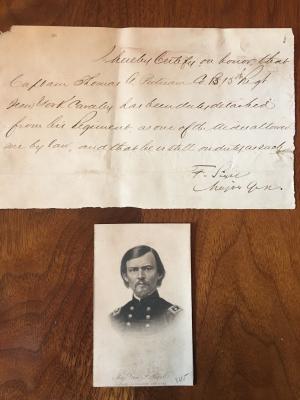 I hereby Certify on honor that
Captain Thomas A Putnam Co B 15th Regt
New York Cavalry has been duly detached
from his Regiment as one of the Aides allowed
me by law, and that he is still on duty as such
F. Sigel
Major Gen.
Maj. Gen. F. Sigel